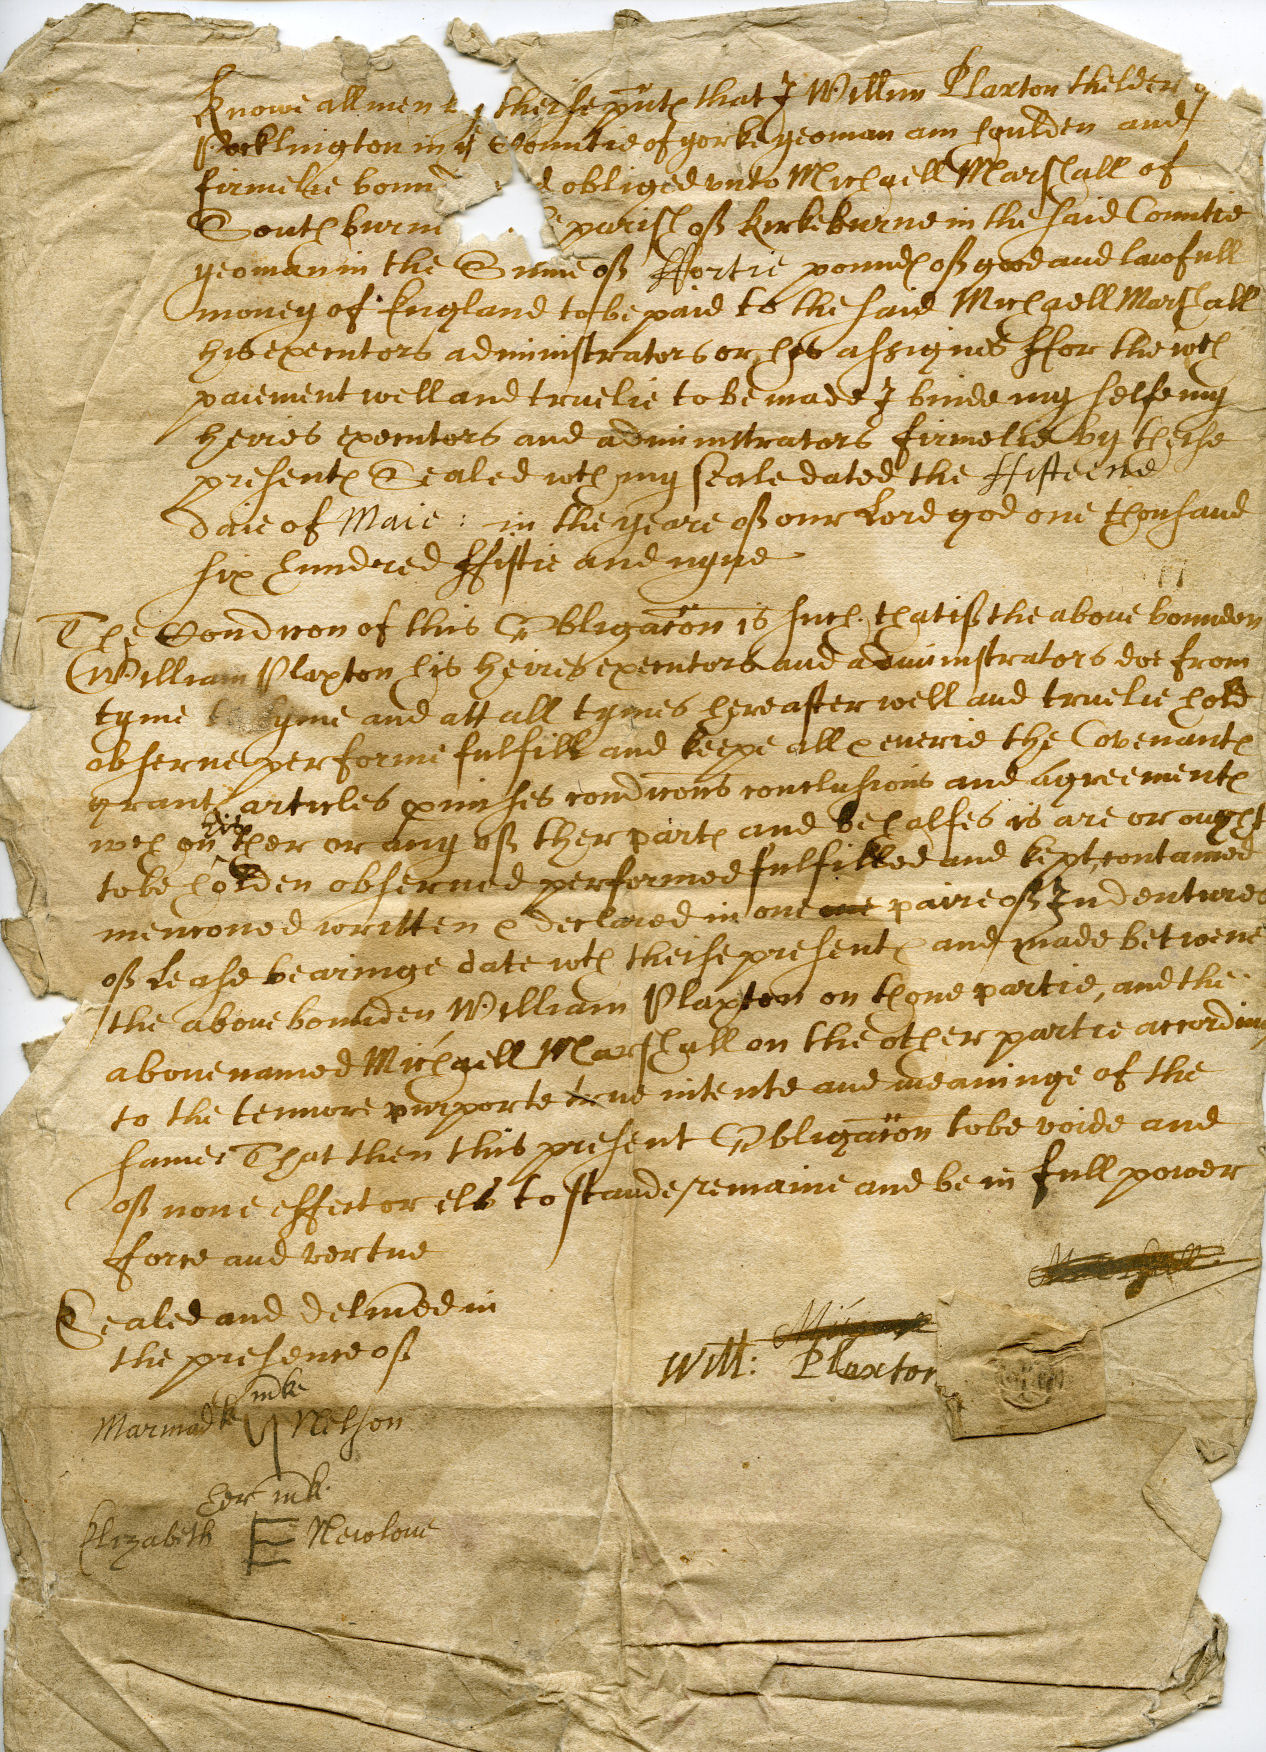 Knowe all men by theise pntes that I Willm Plaxton thelder of
Pocklington in ye Countie of yorke yeoman am houlden and
firmelie bound and obliged vnto Michaell Marshall of
Southburne parish of Kirkeburne in the said Countie
yeoman in the Sume of ffortie poundes of good and lawfull
money of England to be paid to the said Michaell Marshall
his executors administrators or his assignes ffor the wch
paiement well and truelie to be made I binde my selfe my
heires executors and administrators firmelie by theise
presentes Sealed wth my seale dated the ffifteene
daie of Maie : in the yeare of our Lord god one thousand
six hundred ffiftie and nyne
The Condicon of this Obligacon is such, that if the above bounden
William Plaxton his heires executors and administrators doe from
tyme to tyme and att all tymes hereafter well and truelie hold
observe performe fulfill and keepe all & euerie the Covenantes
grantes articles pmises condicons conclusions and agreementes
wch on his ther or any of ther partes and behalfes is are or ought
to be holden obserued performed fulfilled and kept, contained
menconed written & declared in one one paire of Indentures
of Lease bearinge date wth theise presentes and made betwene
the above bounden William Plaxton on thone partie, and the
above named Michaell Marshall on the other partie according
to the tennore purporte true intente and meaninge of the
same: That then this present Obligacon to be voide and
of none effect or els to stande, remaine and be in full power
force and vertue
Marshall
Sealed and deliuered in
the presence of
Michaell
Will: Plaxton
mke
Marmadke Nelson
her mk
Elizabeth E Newloue